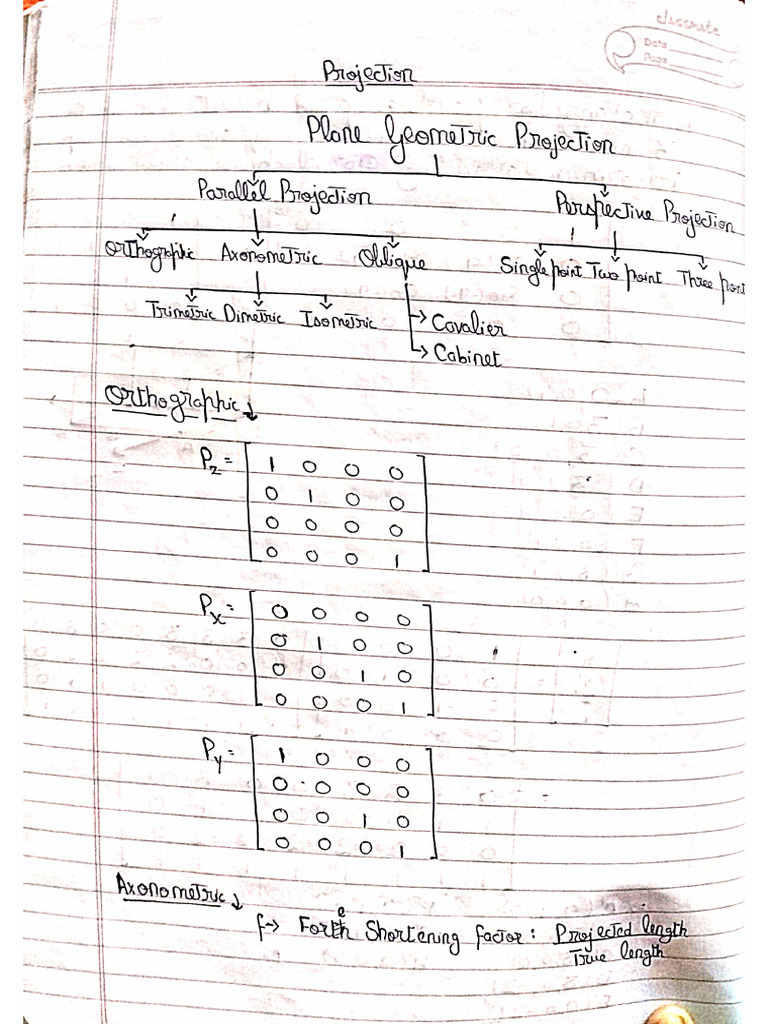 classmate
Date
Page
Projection
Plane Geometric Projection
Parallel Projection Perspective Projection
Orthographic Axonometric Oblique Single point Two point Three point
Trimetric Dimetric Isometric → Cavalier
→ Cabinet
Orthographic ↓
Pz = [ 1 0 0 0
0 1 0 0
0 0 0 0
0 0 0 1 ]
Px = [ 0 0 0 0
0 1 0 0
0 0 1 0
0 0 0 1 ]
Py = [ 1 0 0 0
0 0 0 0
0 0 1 0
0 0 0 1 ]
Axonometric ↓
f → Fore Shortening factor : Projected length
True length